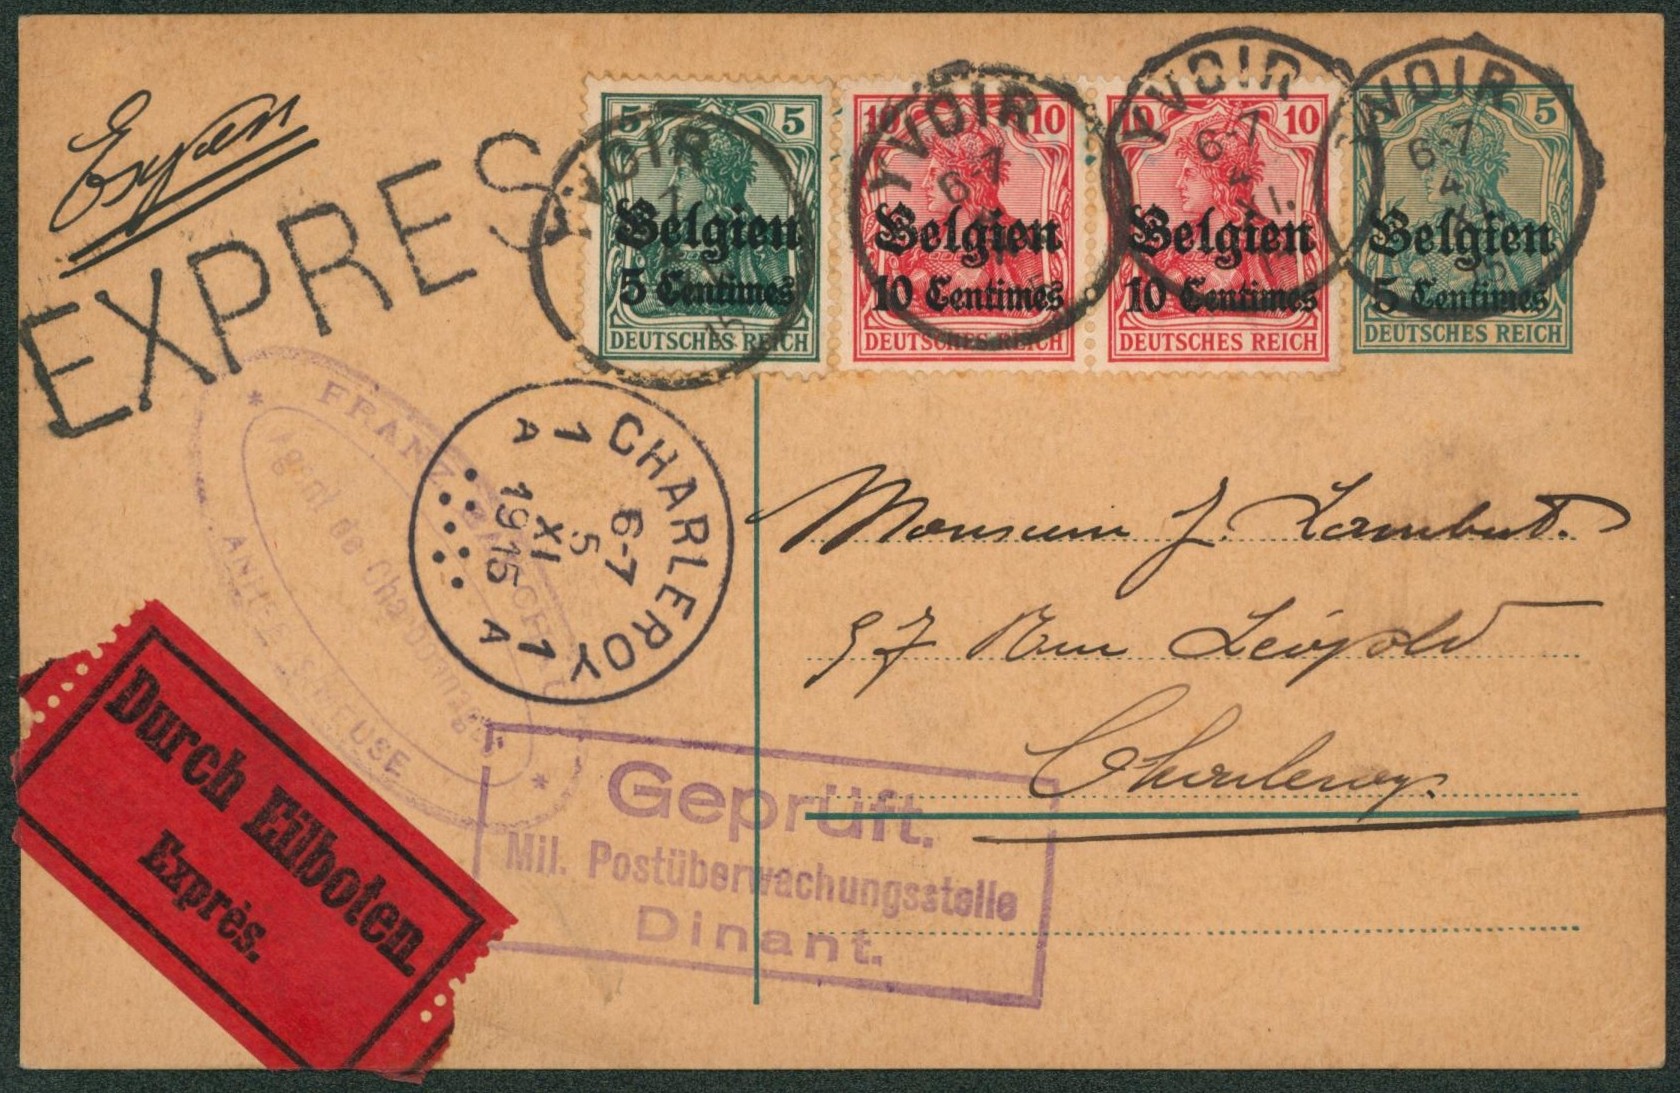 Expres
EXPRES
5 5
Belgien
5 Centimes
DEUTSCHES REICH
10 10
Belgien
10 Centimes
DEUTSCHES REICH
10 10
Belgien
10 Centimes
DEUTSCHES REICH
5 5
Belgien
5 Centimes
DEUTSCHES REICH
YVOIR
15
YVOIR
6-7
YVOIR
6-7
4
XI.
YVOIR
6-7
4
XI
15
CHARLEROY
1 A 1 A
6-7
5
XI
1915
FRANZ
Agent de Charbonnages
MEUSE
Monsieur J. Lambert.
57 Rue Léopold
Charleroy.
Durch Eilboten
Exprés.
Geprüft.
Mil. Postüberwachungsstelle
Dinant.